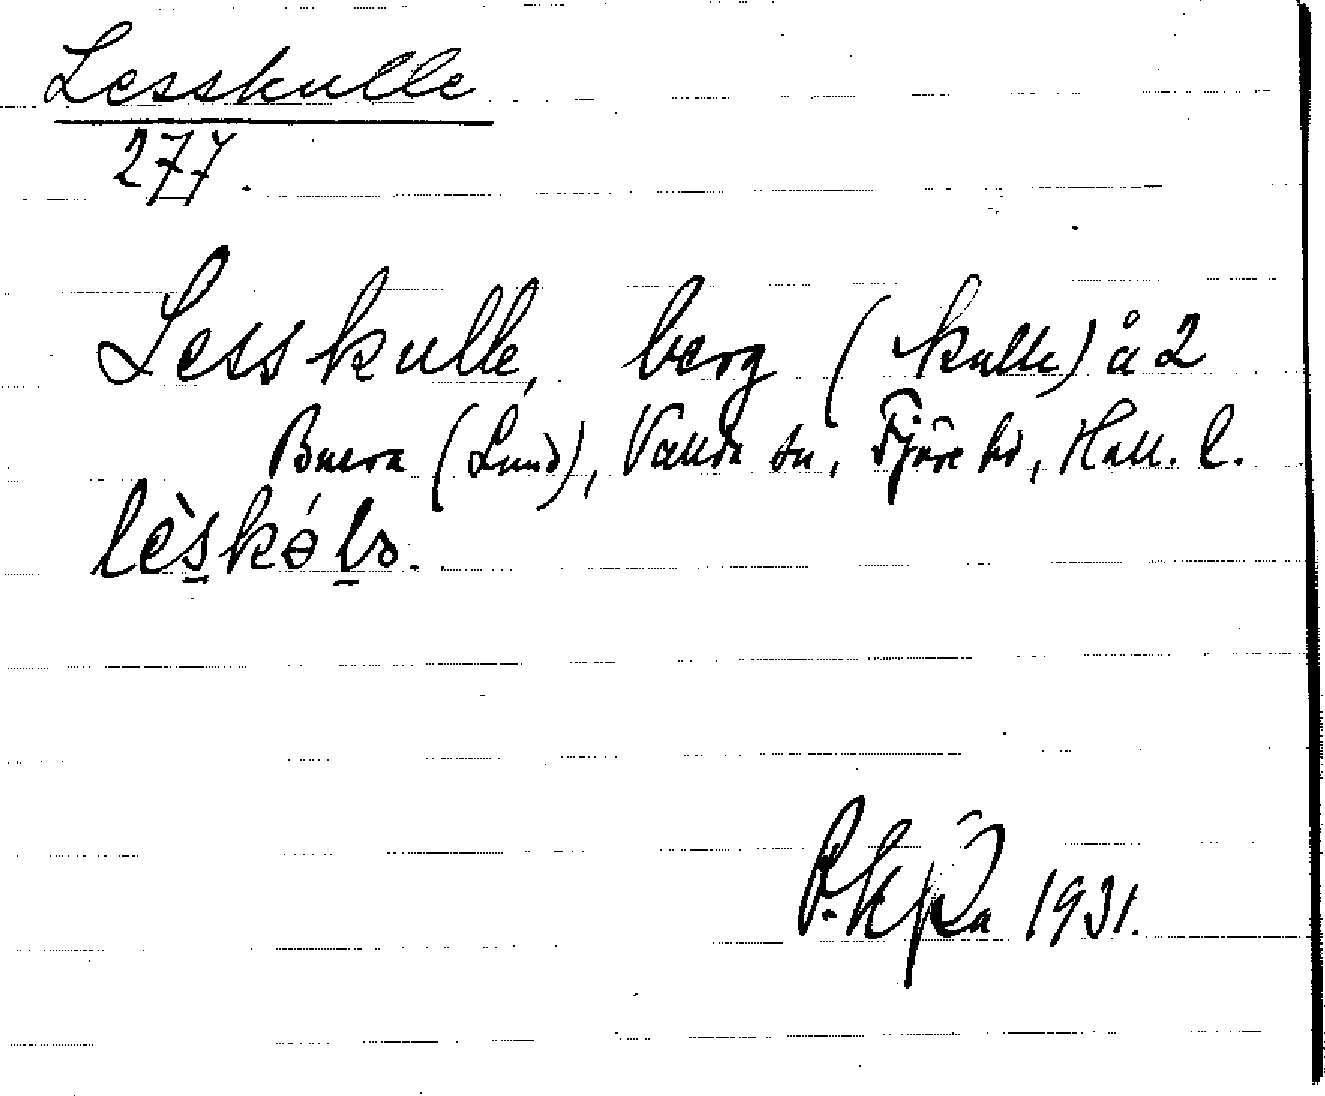 Lesskulle
277.
Lesskulle, berg (kulle) å 2
Buera (Lund), Vallda sn, Fjäre hd, Hall. l.
lèskó̵lə.
1931.